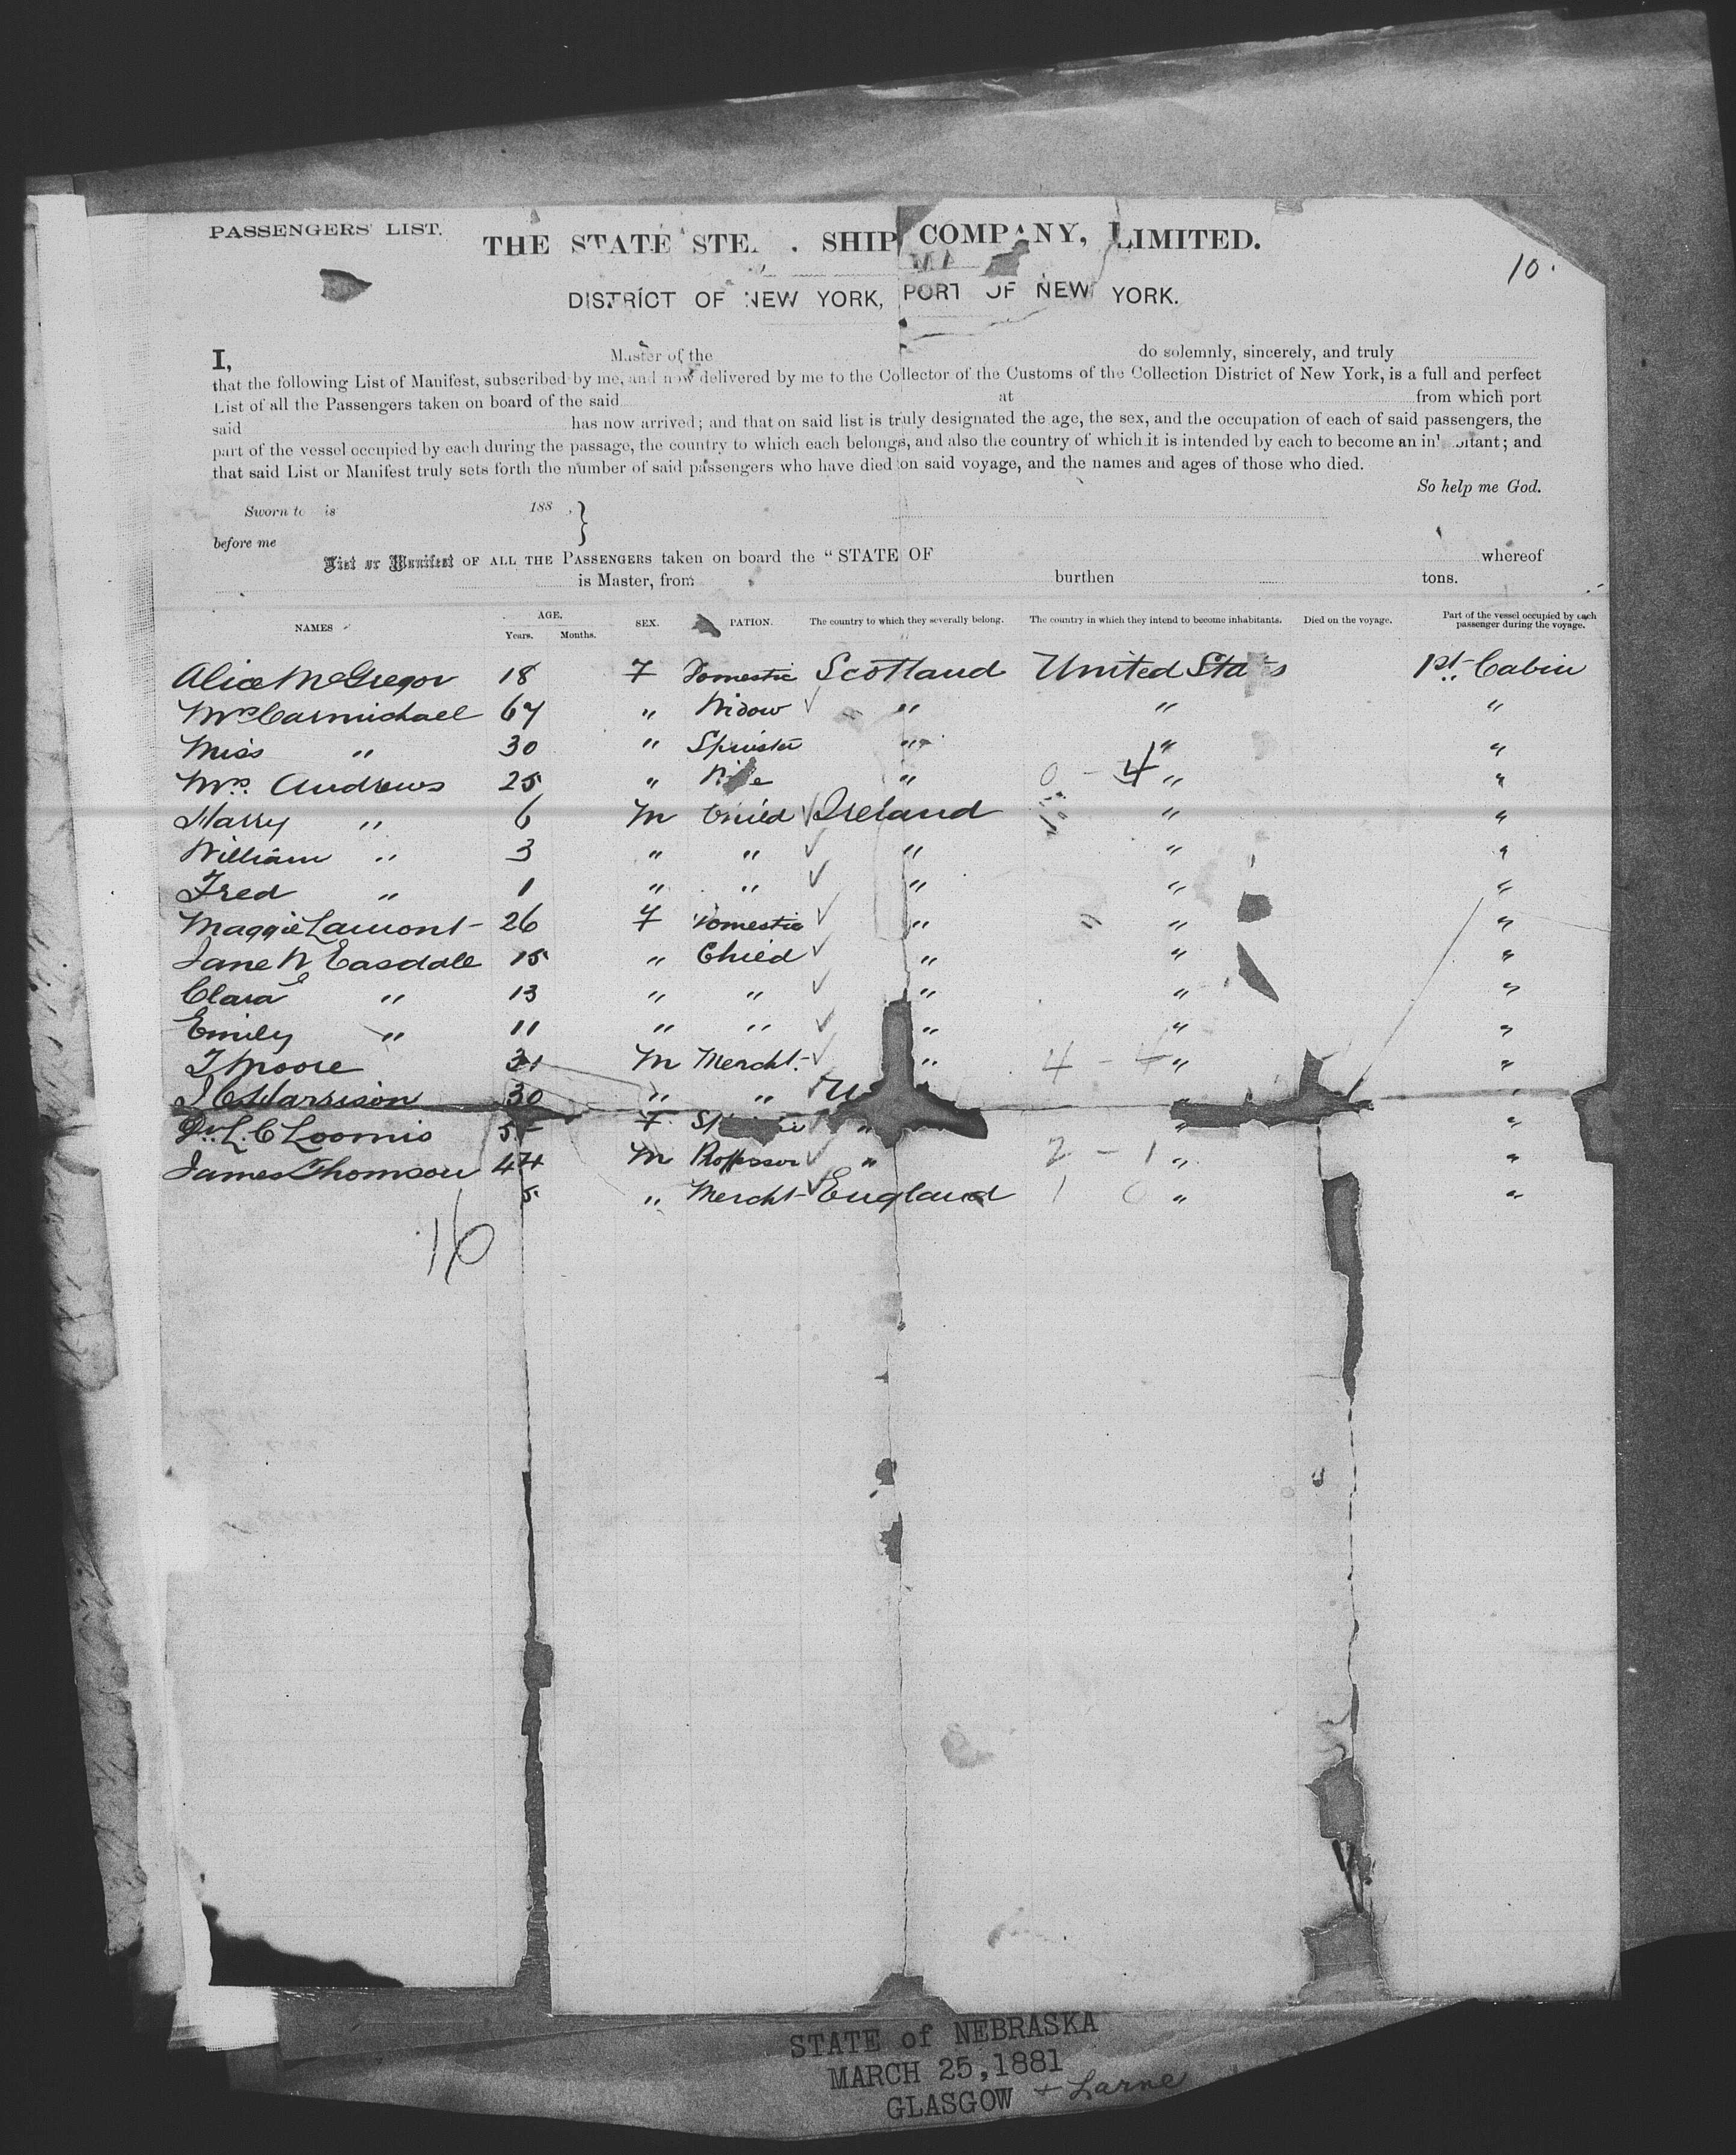 PASSENGERS' LIST.
THE STATE STE. . SHIP COMPANY, LIMITED.
10.
DISTRICT OF NEW YORK, PORT OF NEW YORK.
I, Master of the do solemnly, sincerely, and truly
that the following List of Manifest, subscribed by me, and now delivered by me to the Collector of the Customs of the Collection District of New York, is a full and perfect
List of all the Passengers taken on board of the said at from which port
said has now arrived; and that on said list is truly designated the age, the sex, and the occupation of each of said passengers, the
part of the vessel occupied by each during the passage, the country to which each belongs, and also the country of which it is intended by each to become an in itant; and
that said List or Manifest truly sets forth the number of said passengers who have died on said voyage, and the names and ages of those who died.
So help me God.
Sworn to is 188 .
before me
List or Manifest OF ALL THE PASSENGERS taken on board the "STATE OF whereof
is Master, from burthen tons.
NAMES AGE. Years. Months. SEX. PATION. The country to which they severally belong. The country in which they intend to become inhabitants. Died on the voyage. Part of the vessel occupied by each passenger during the voyage.
Alice McGregor 18 F Domestic Scotland United States 1st Cabin
Mrs Carmichael 67 " Widow " " "
Miss " 30 " Spinster " " "
Mrs. Andrews 25 " Wife " 0 - 4 " "
Harry " 6 M Child Ireland " "
William " 3 " " " " "
Fred " 1 " " " " "
Maggie Lamont 26 F Domestic " " "
Jane W Easdale 15 " Child " " "
Clara " 13 " " " " "
Emily " 11 " " " " "
T Moore 31 M Mercht. " 4 - 4 " "
J C Harrison 30 " " U " "
Dr. L. C Loomis 5 F " " "
James Thomson 44 M Professor " 2 - 1 " "
5 " Mercht England 1 0 " "
16
STATE of NEBRASKA
MARCH 25, 1881
GLASGOW + Larne